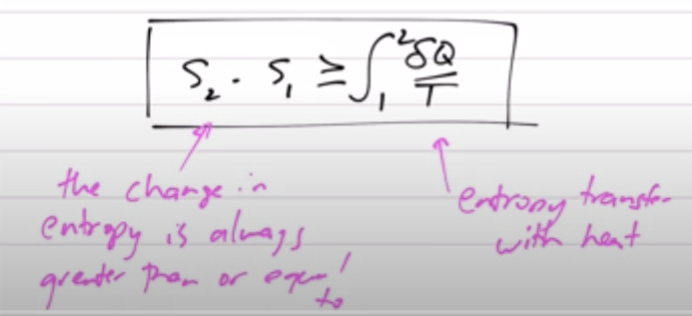 S₂ - S₁ ≥ ∫₁² δQ/T
the change in
entropy is always
greater than or equal
to
entropy transfer
with heat